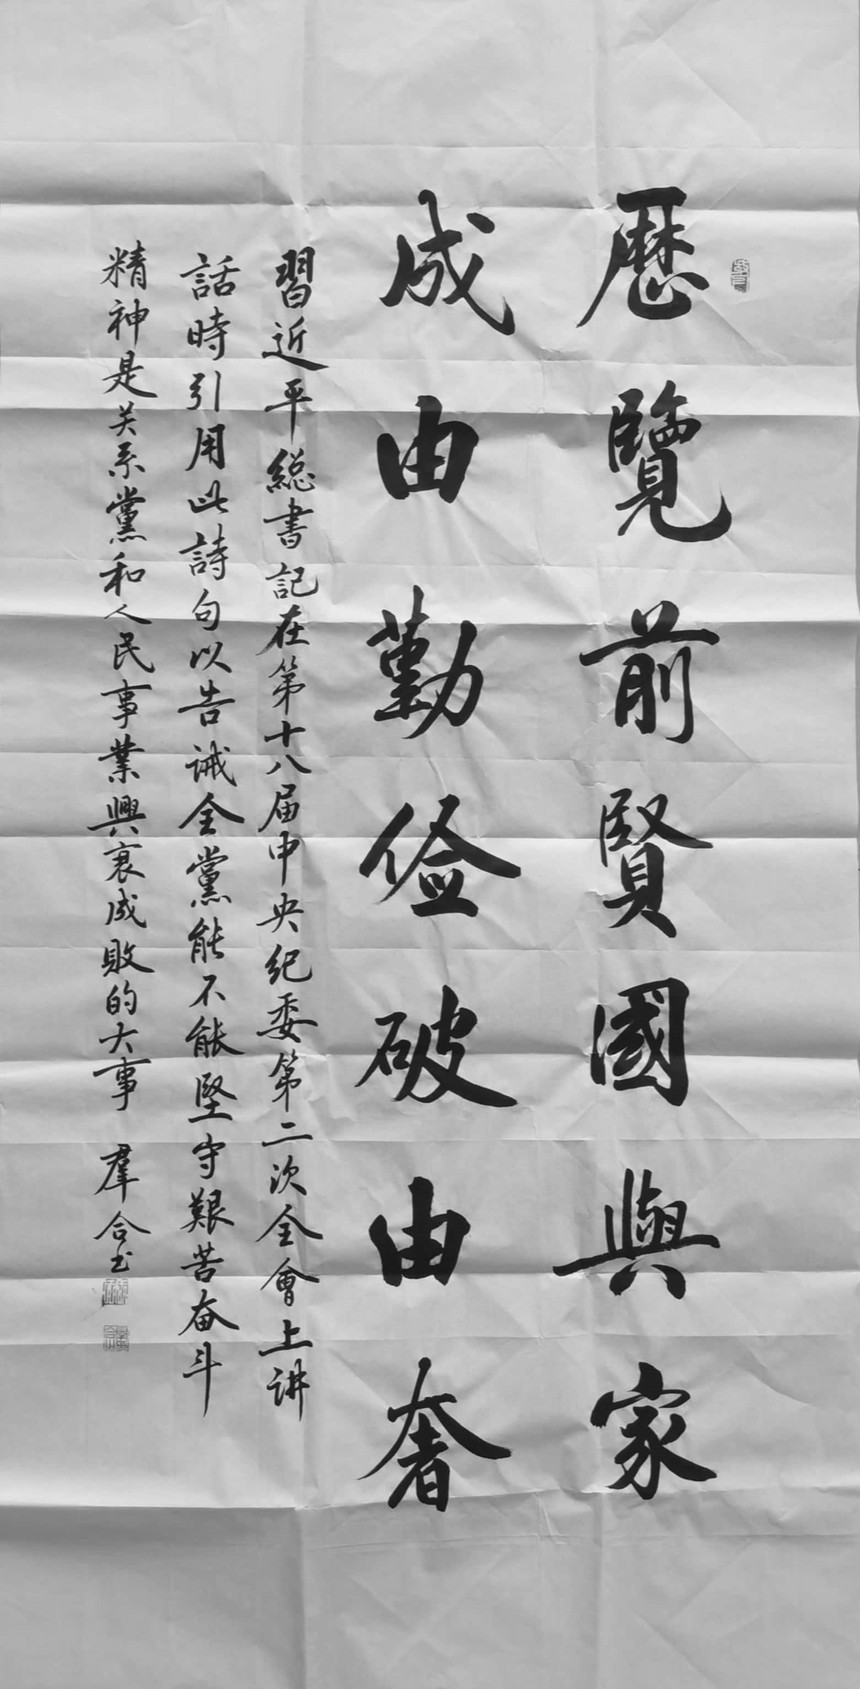 歷覽前賢國與家
成由勤儉破由奢
習近平総書記在第十八届中央纪委第二次全會上讲
話時引用此詩句以告诫全黨能不能堅守艱苦奋斗
精神是关系黨和人民事業興衰成敗的大事 羣合书